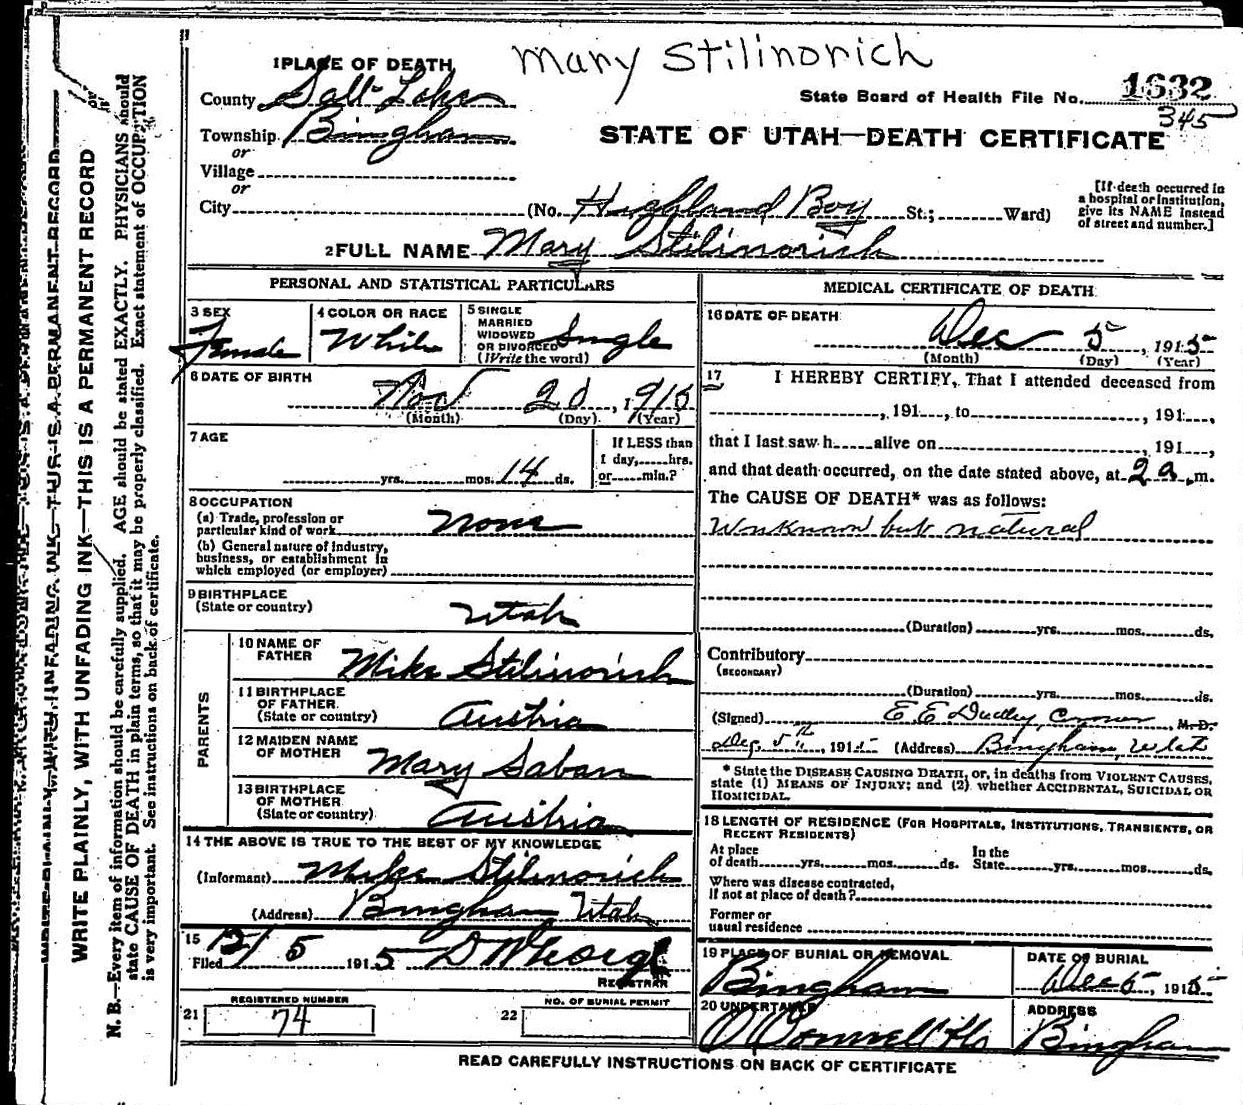 Mary Stilinovich
1 PLACE OF DEATH
County Salt Lake
State Board of Health File No. 1632
345
Township Bingham
or
STATE OF UTAH—DEATH CERTIFICATE
Village
or
City (No. Highland Boy St.; Ward)
[If death occurred in
a hospital or institution,
give its NAME instead
of street and number.]
2 FULL NAME Mary Stilinovich
PERSONAL AND STATISTICAL PARTICULARS
3 SEX
Female
4 COLOR OR RACE
White
5 SINGLE
MARRIED
WIDOWED
OR DIVORCED
(Write the word)
Single
6 DATE OF BIRTH
Nov 20, 1915
(Month) (Day) (Year)
7 AGE
yrs. mos. 14 ds.
If LESS than
1 day, hrs.
or min.?
8 OCCUPATION
(a) Trade, profession or
particular kind of work None
(b) General nature of industry,
business, or establishment in
which employed (or employer)
9 BIRTHPLACE
(State or country) Utah
PARENTS
10 NAME OF
FATHER Mike Stilinovich
11 BIRTHPLACE
OF FATHER
(State or country) Austria
12 MAIDEN NAME
OF MOTHER Mary Saban
13 BIRTHPLACE
OF MOTHER
(State or country) Austria
14 THE ABOVE IS TRUE TO THE BEST OF MY KNOWLEDGE
(Informant) Mike Stilinovich
(Address) Bingham Utah
15
Filed 12/5 1915
REGISTRAR
REGISTERED NUMBER
21 74
NO. OF BURIAL PERMIT
22
MEDICAL CERTIFICATE OF DEATH
16 DATE OF DEATH
Dec 5, 1915
(Month) (Day) (Year)
17 I HEREBY CERTIFY, That I attended deceased from
, 191 , to , 191 ,
that I last saw h alive on , 191 ,
and that death occurred, on the date stated above, at 2 a. m.
The CAUSE OF DEATH* was as follows:
Unknown but natural
(Duration) yrs. mos. ds.
Contributory
(SECONDARY)
(Duration) yrs. mos. ds.
(Signed) E. E. Dudley, Croner, M. D.
5th, 1915 (Address) Bingham, Utah
* State the DISEASE CAUSING DEATH, or, in deaths from VIOLENT CAUSES,
state (1) MEANS OF INJURY; and (2) whether ACCIDENTAL, SUICIDAL OR
HOMICIDAL.
18 LENGTH OF RESIDENCE (FOR HOSPITALS, INSTITUTIONS, TRANSIENTS, OR
RECENT RESIDENTS)
At place
of death yrs. mos. ds.
In the
State yrs. mos. ds.
Where was disease contracted,
if not at place of death?
Former or
usual residence
19 PLACE OF BURIAL OR REMOVAL
Bingham
DATE OF BURIAL
Dec 5, 1915
20 UNDERTAKER
ADDRESS
Bingham
READ CAREFULLY INSTRUCTIONS ON BACK OF CERTIFICATE
WRITE PLAINLY, WITH UNFADING INK—THIS IS A PERMANENT RECORD
N. B.—Every item of information should be carefully supplied. AGE should be stated EXACTLY. PHYSICIANS should
state CAUSE OF DEATH in plain terms, so that it may be properly classified. Exact statement of OCCUPATION
is very important. See instructions on back of certificate.